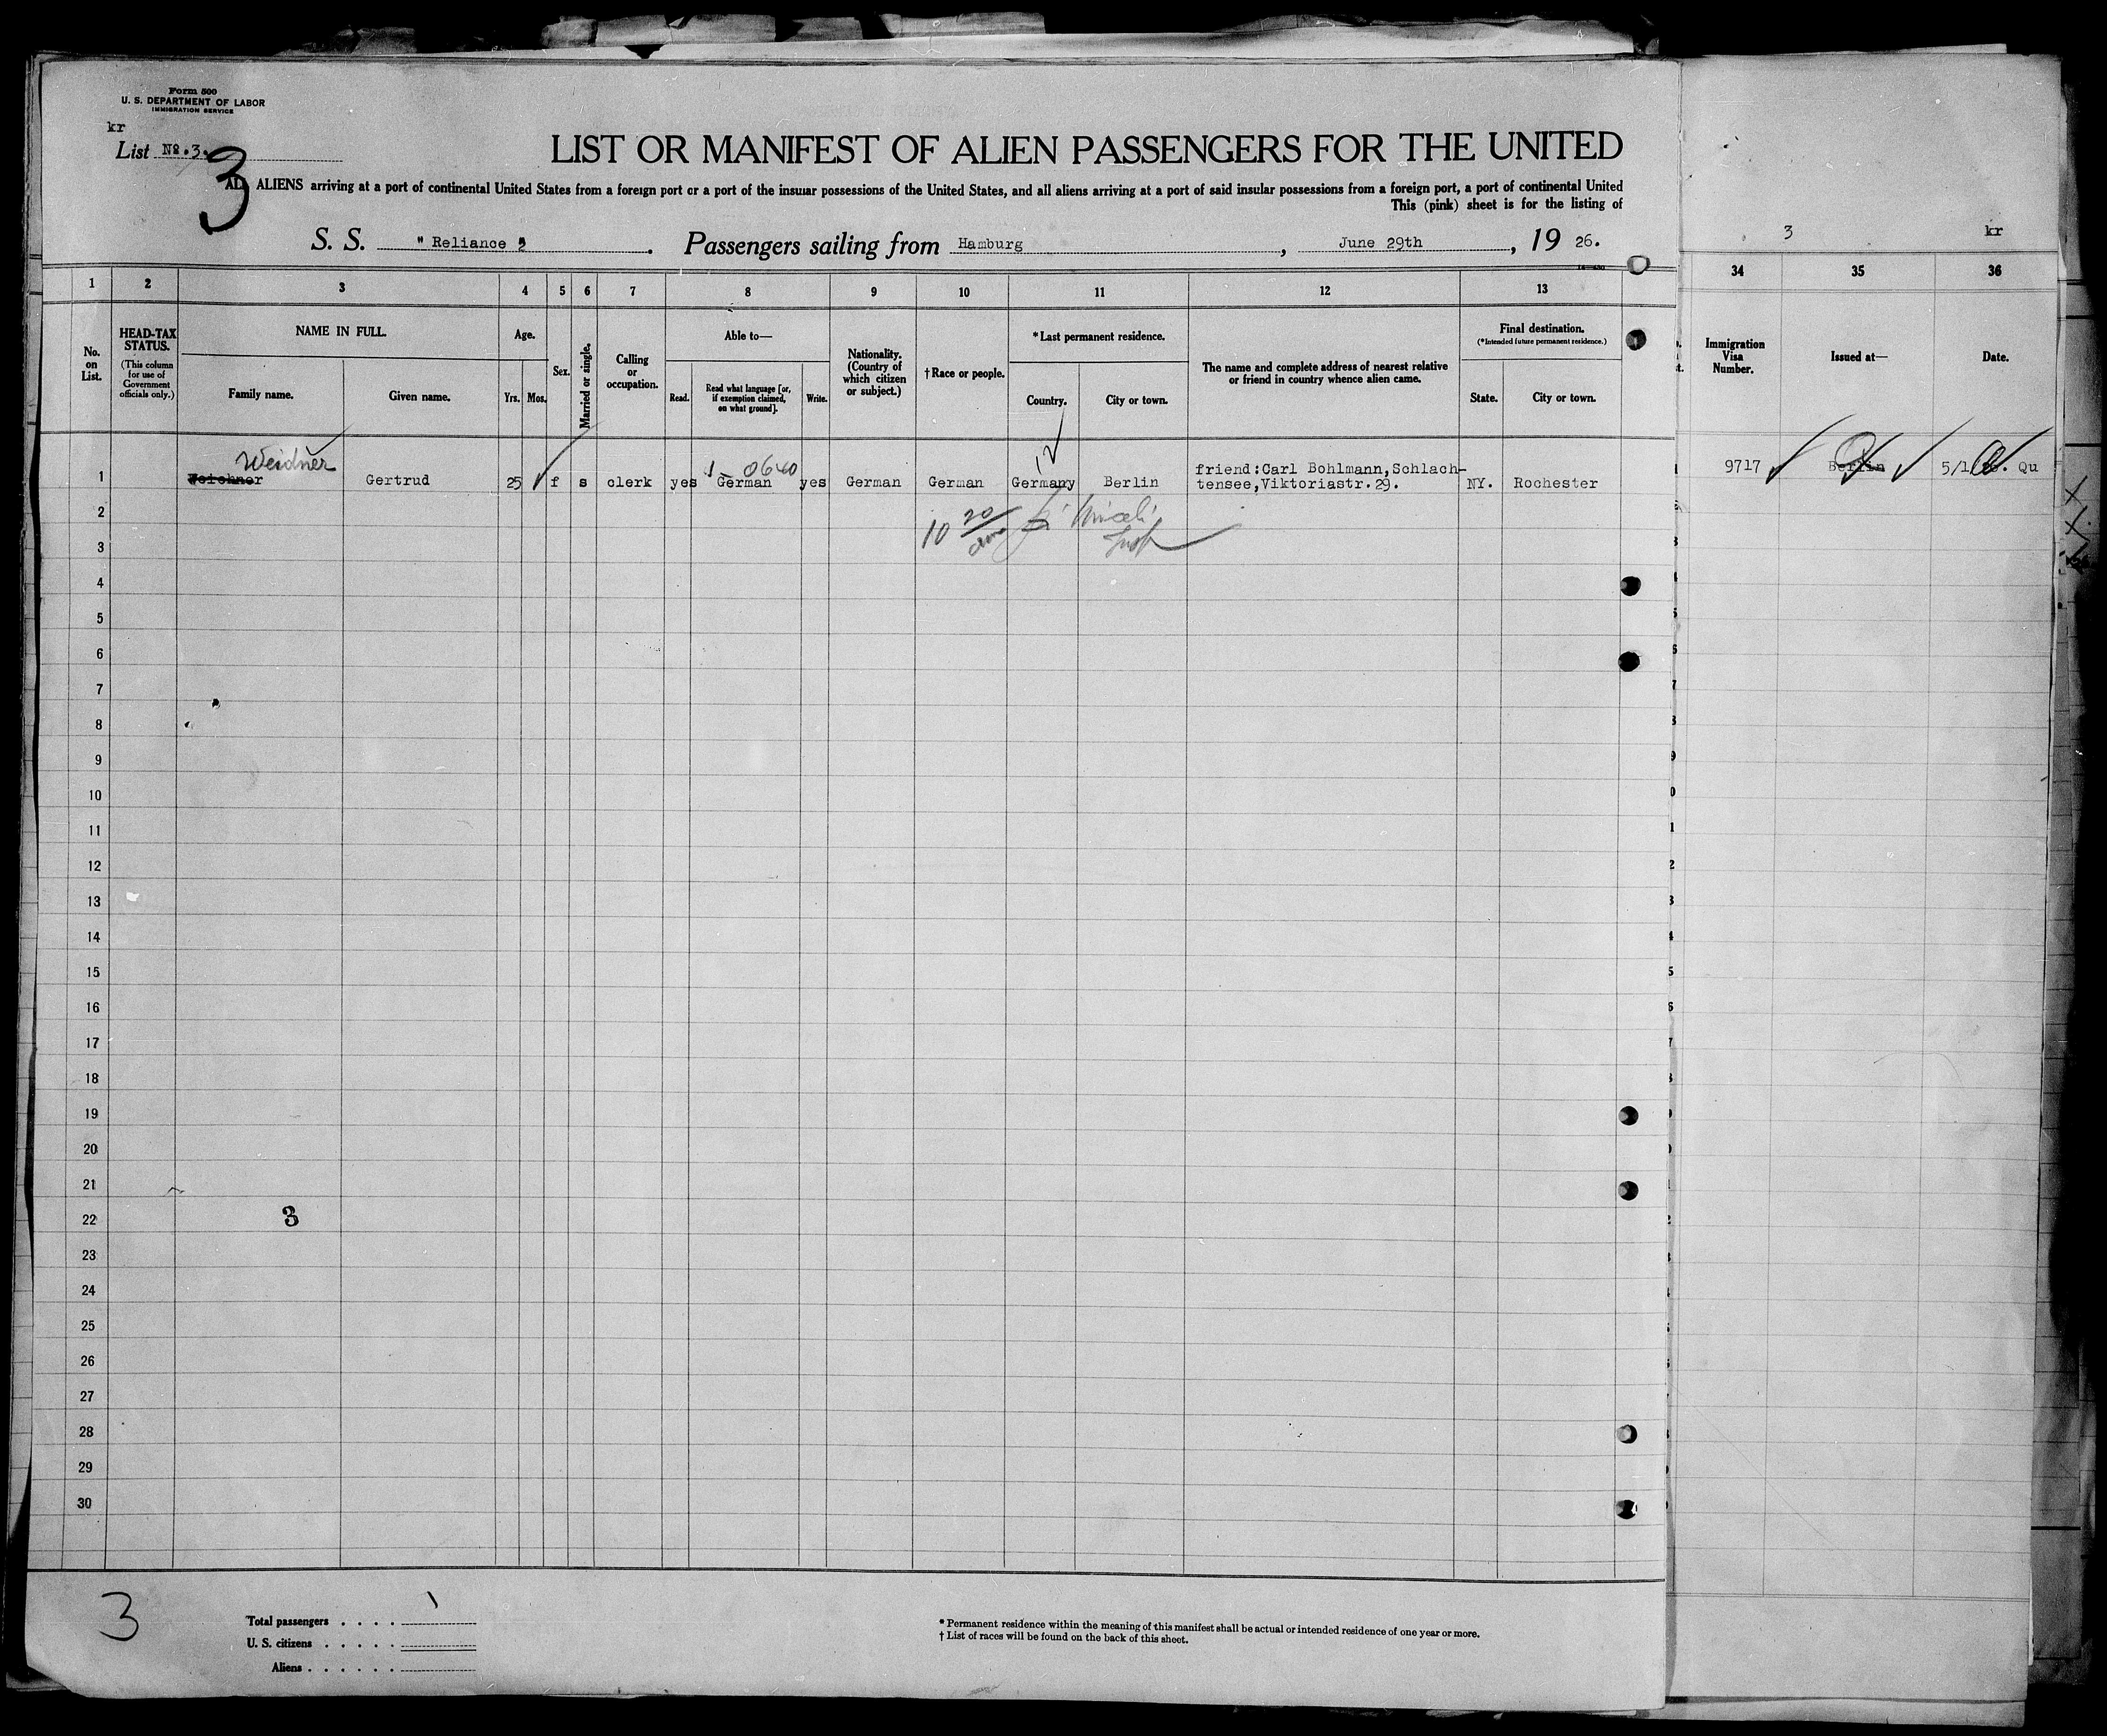 Form 500
U. S. DEPARTMENT OF LABOR
IMMIGRATION SERVICE
kr
List No. 3.
3
LIST OR MANIFEST OF ALIEN PASSENGERS FOR THE UNITED
ALL ALIENS arriving at a port of continental United States from a foreign port or a port of the insular possessions of the United States, and all aliens arriving at a port of said insular possessions from a foreign port, a port of continental United
This (pink) sheet is for the listing of
S. S. "Reliance". Passengers sailing from Hamburg, June 29th, 19 26.
3 kr
1 2 3 4 5 6 7 8 9 10 11 12 13 34 35 36
No. on List.
HEAD-TAX STATUS.
(This column for use of Government officials only.)
NAME IN FULL.
Family name. Given name.
Age.
Yrs. Mos.
Sex.
Married or single.
Calling or occupation.
Able to—
Read. Read what language [or, if exemption claimed, on what ground]. Write.
Nationality. (Country of which citizen or subject.)
†Race or people.
*Last permanent residence.
Country. City or town.
The name and complete address of nearest relative or friend in country whence alien came.
Final destination.
(*Intended future permanent residence.)
State. City or town.
Immigration Visa Number.
Issued at—
Date.
Weidner
1 Weichner Gertrud 25 f s clerk yes German yes German German Germany Berlin friend:Carl Bohlmann,Schlach-
tensee,Viktoriastr.29. NY. Rochester 9717 Berlin 5/1 Qu
2
10 20
3
4
5
6
7
8
9
10
11
12
13
14
15
16
17
18
19
20
21
22 3
23
24
25
26
27
28
29
30
3
Total passengers . . . . 1
U. S. citizens . . . . .
Aliens . . . . . .
* Permanent residence within the meaning of this manifest shall be actual or intended residence of one year or more.
† List of races will be found on the back of this sheet.